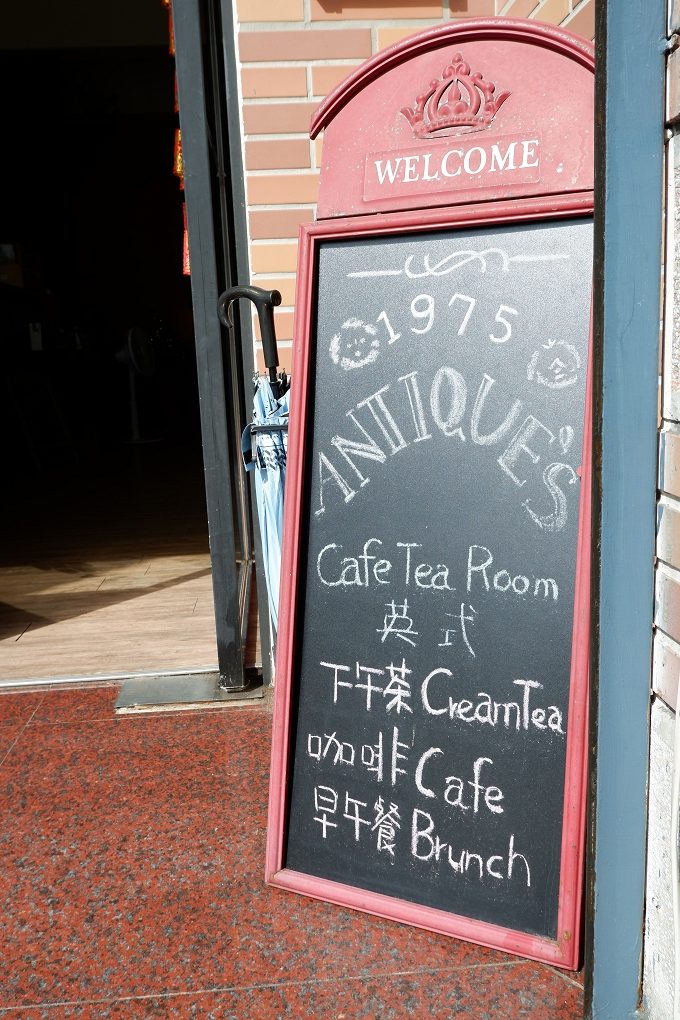 WELCOME
1975
ANTIQUE'S
Cafe Tea Room
英式
下午茶 CreamTea
咖啡 Cafe
早午餐 Brunch